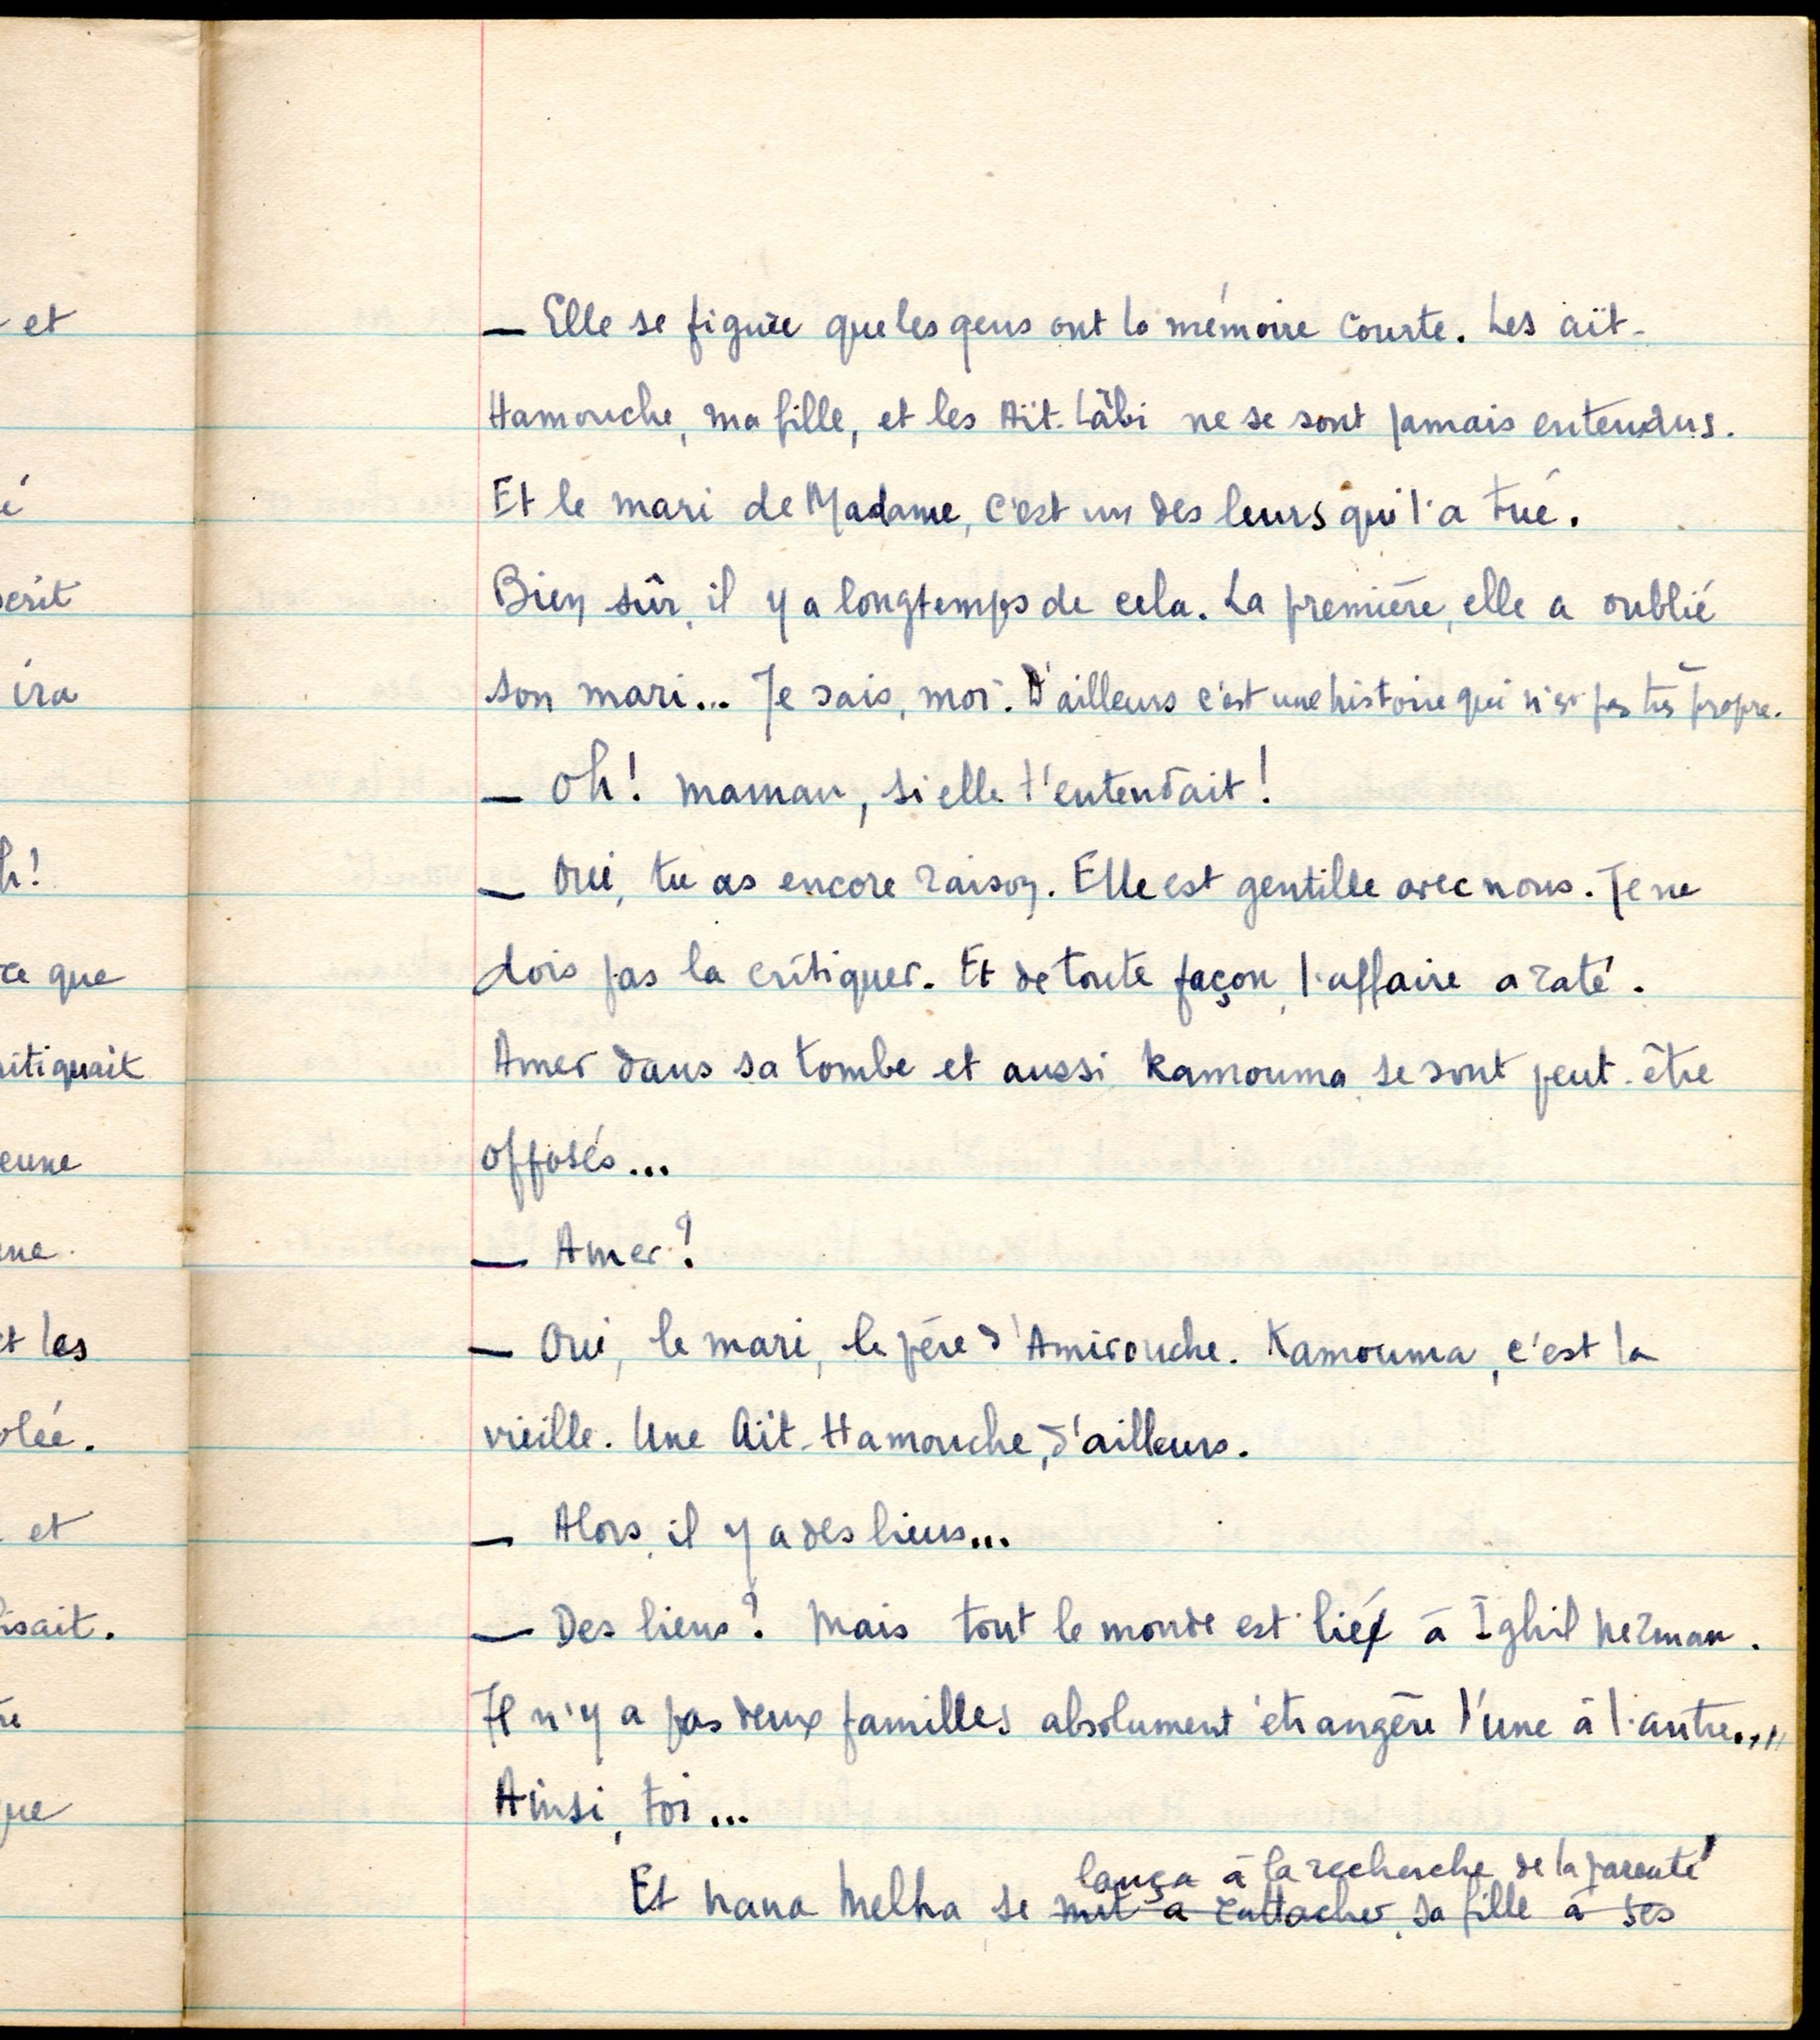 et
é
serit
ira
h!
ce que
ritiquait
eune
une
et les
olée.
et
lisait.
que
— Elle se figure que les gens ont la mémoire courte. Les aït-
Hamouche, ma fille, et les Aït-Lâbi ne se sont jamais entendus.
Et le mari de Madame, c'est un des leurs qui l'a tué.
Bien sûr, il y a longtemps de cela. La première, elle a oublié
son mari... Je sais, moi. D'ailleurs c'est une histoire qui n'est pas très propre.
— Oh! maman, si elle t'entendait!
— Oui, tu as encore raison. Elle est gentille avec nous. Je ne
dois pas la critiquer. Et de toute façon, l'affaire a raté.
Amer dans sa tombe et aussi Kamouma se sont peut-être
opposés...
— Amer?
— Oui, le mari, le père d'Amirouche. Kamouma, c'est la
vieille. Une Aït-Hamouche, d'ailleurs.
— Alors, il y a des liens...
— Des liens? Mais tout le monde est lié à Ighil Nezman.
Il n'y a pas deux familles absolument étrangère l'une à l'autre...
Ainsi, toi...
lança à la recherche de la parenté
Et nana Melha se mit à rattacher sa fille à ses